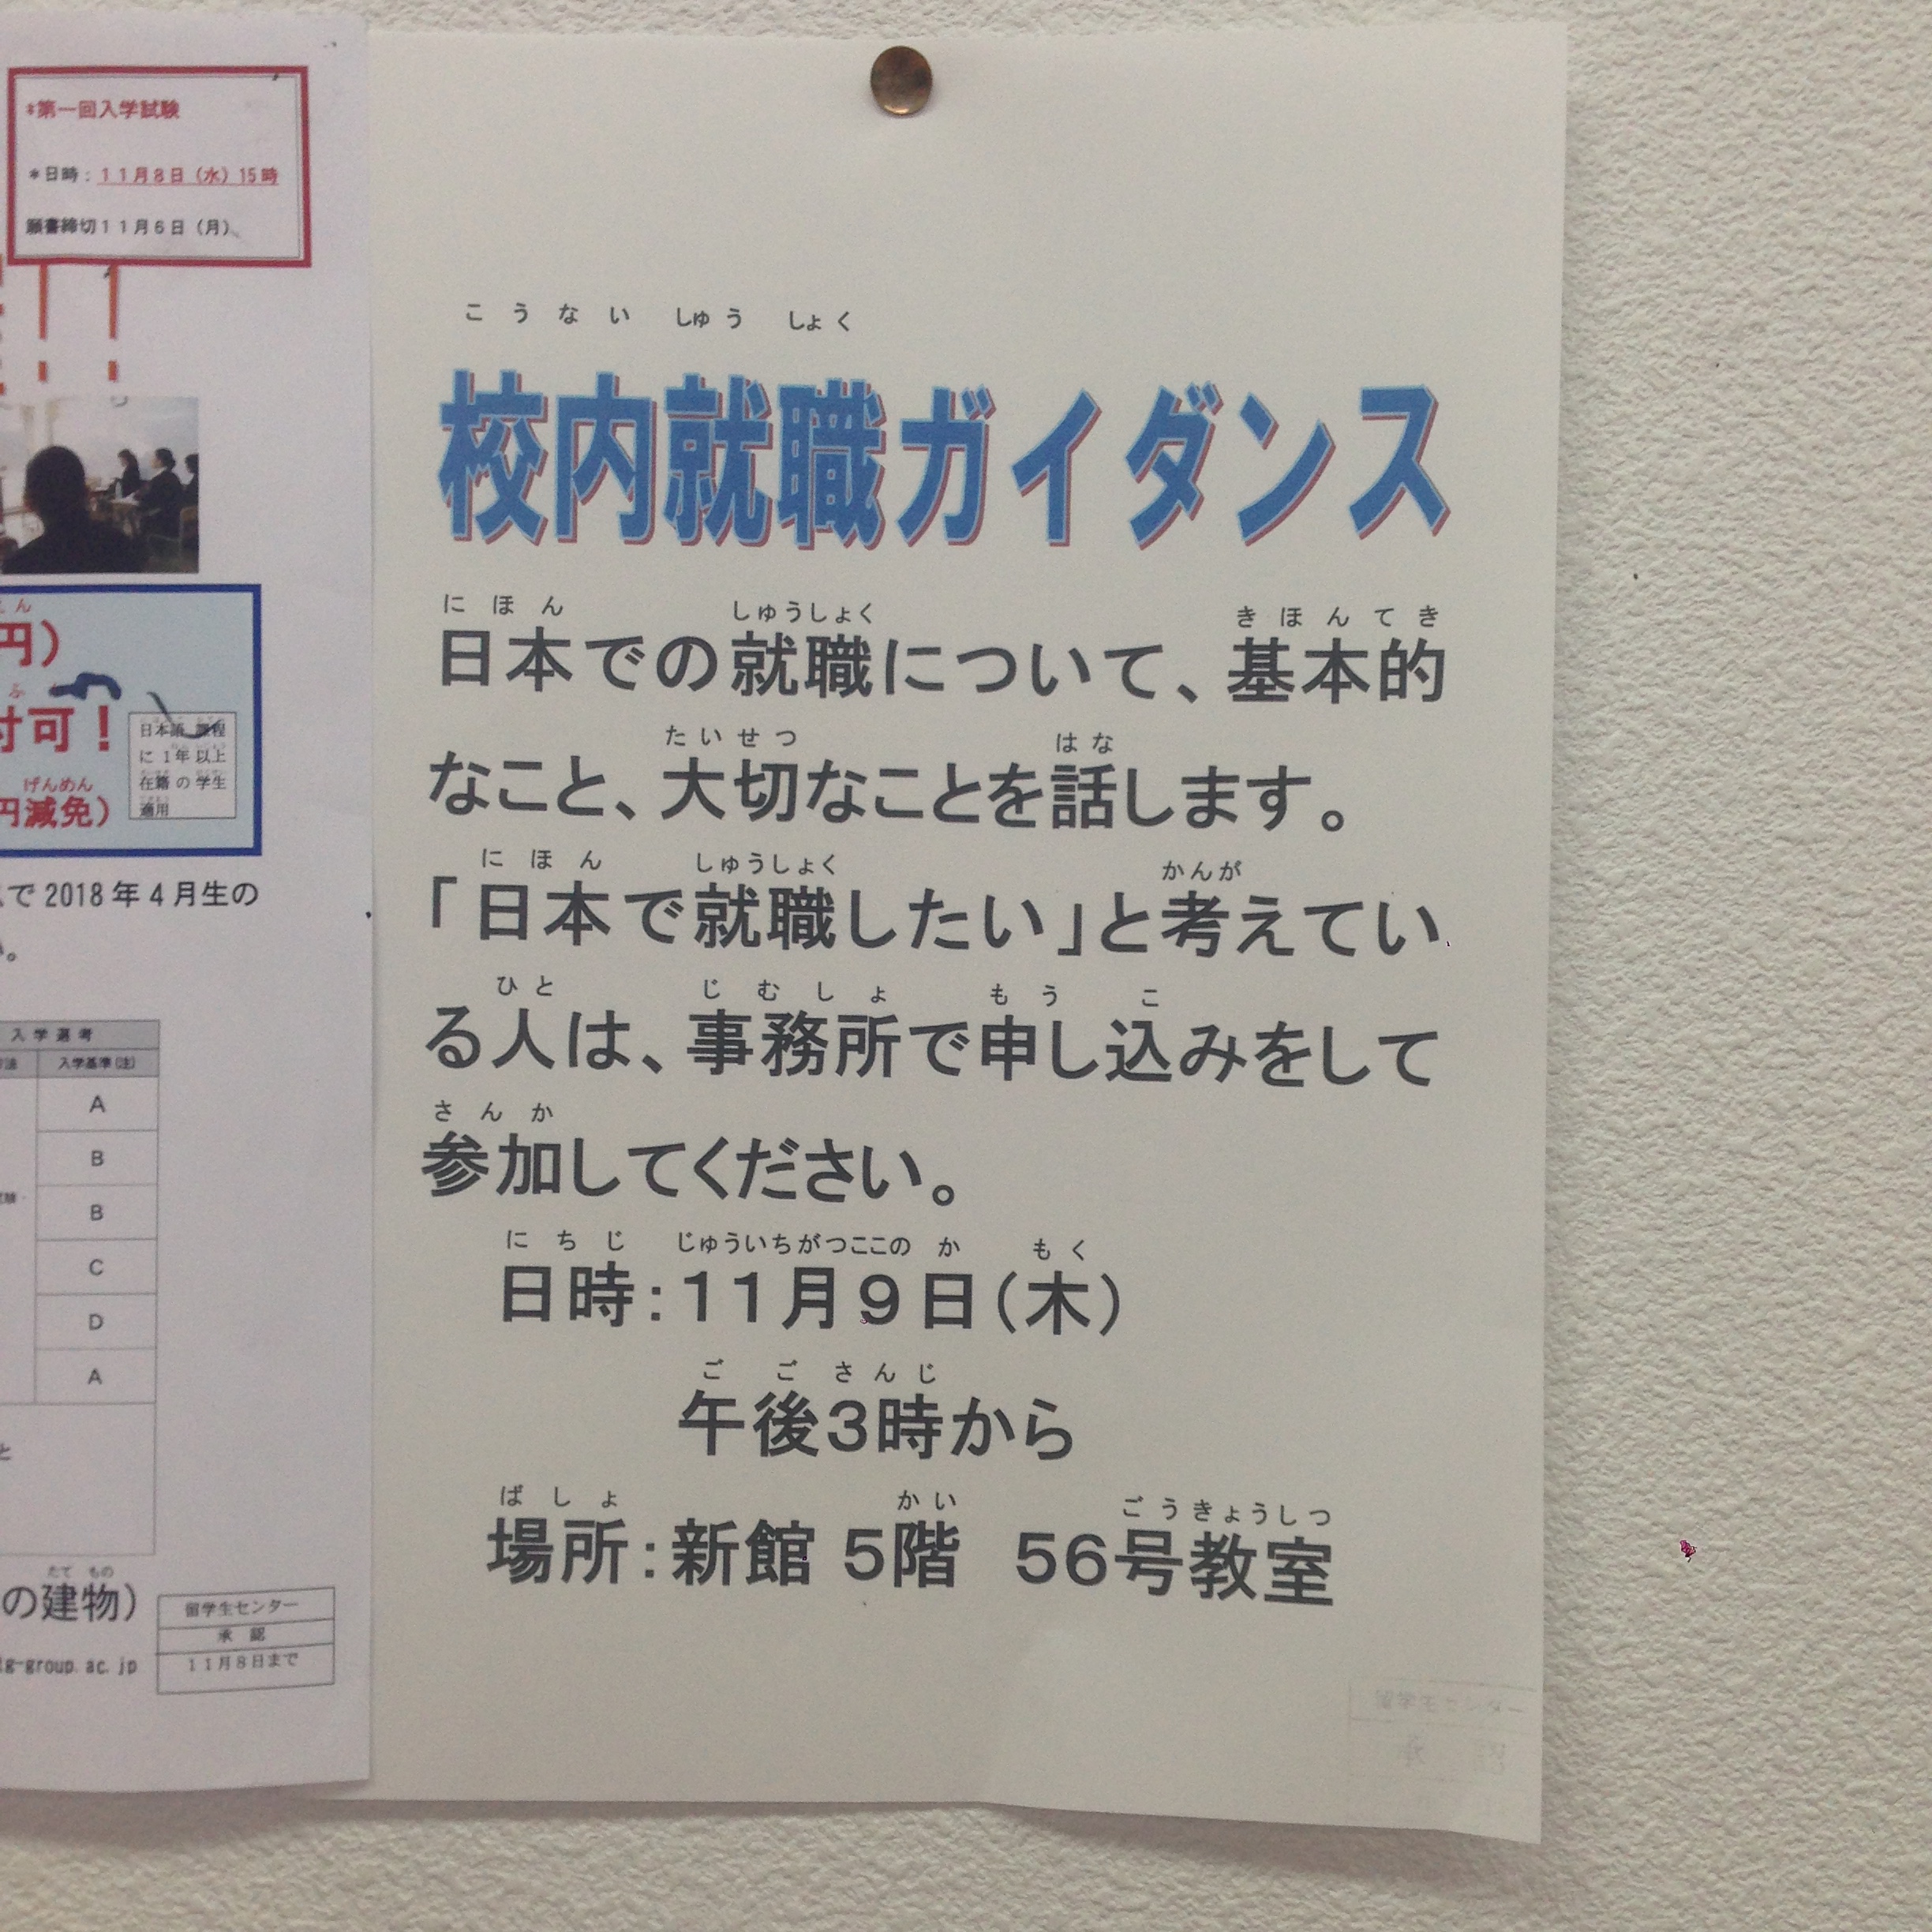 *第一回入学試験
*日時：11月8日（水）15時
願書締切11月6日（月）
円）
付可！
日本語 課程
に1年以上
在籍の学生
適用
げんめん
円減免）
で2018年4月生の
入学選考
入学基準(注)
A
B
B
C
D
A
と
たて もの
の建物）
留学生センター
承 認
11月8日まで
g-group.ac.jp
こうない しゅう しょく
校内就職ガイダンス
にほん しゅうしょく きほんてき
日本での就職について、基本的
たいせつ はな
なこと、大切なことを話します。
にほん しゅうしょく かんが
「日本で就職したい」と考えてい
ひと じむしょ もう こ
る人は、事務所で申し込みをして
さんか
参加してください。
にちじ じゅういちがつここのか もく
日時：11月9日（木）
ごご さんじ
午後3時から
ばしょ かい ごうきょうしつ
場所：新館 5階 56号教室
留学生センター
承 認